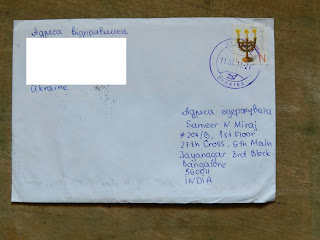 Адреса відправника
Ukraine
N
Адреса одержувача
Sameer N Miraj
# 204/B, 1st Floor
27th Cross, 6th Main
Jayanagar 3rd Block
Bangalore
560011
INDIA